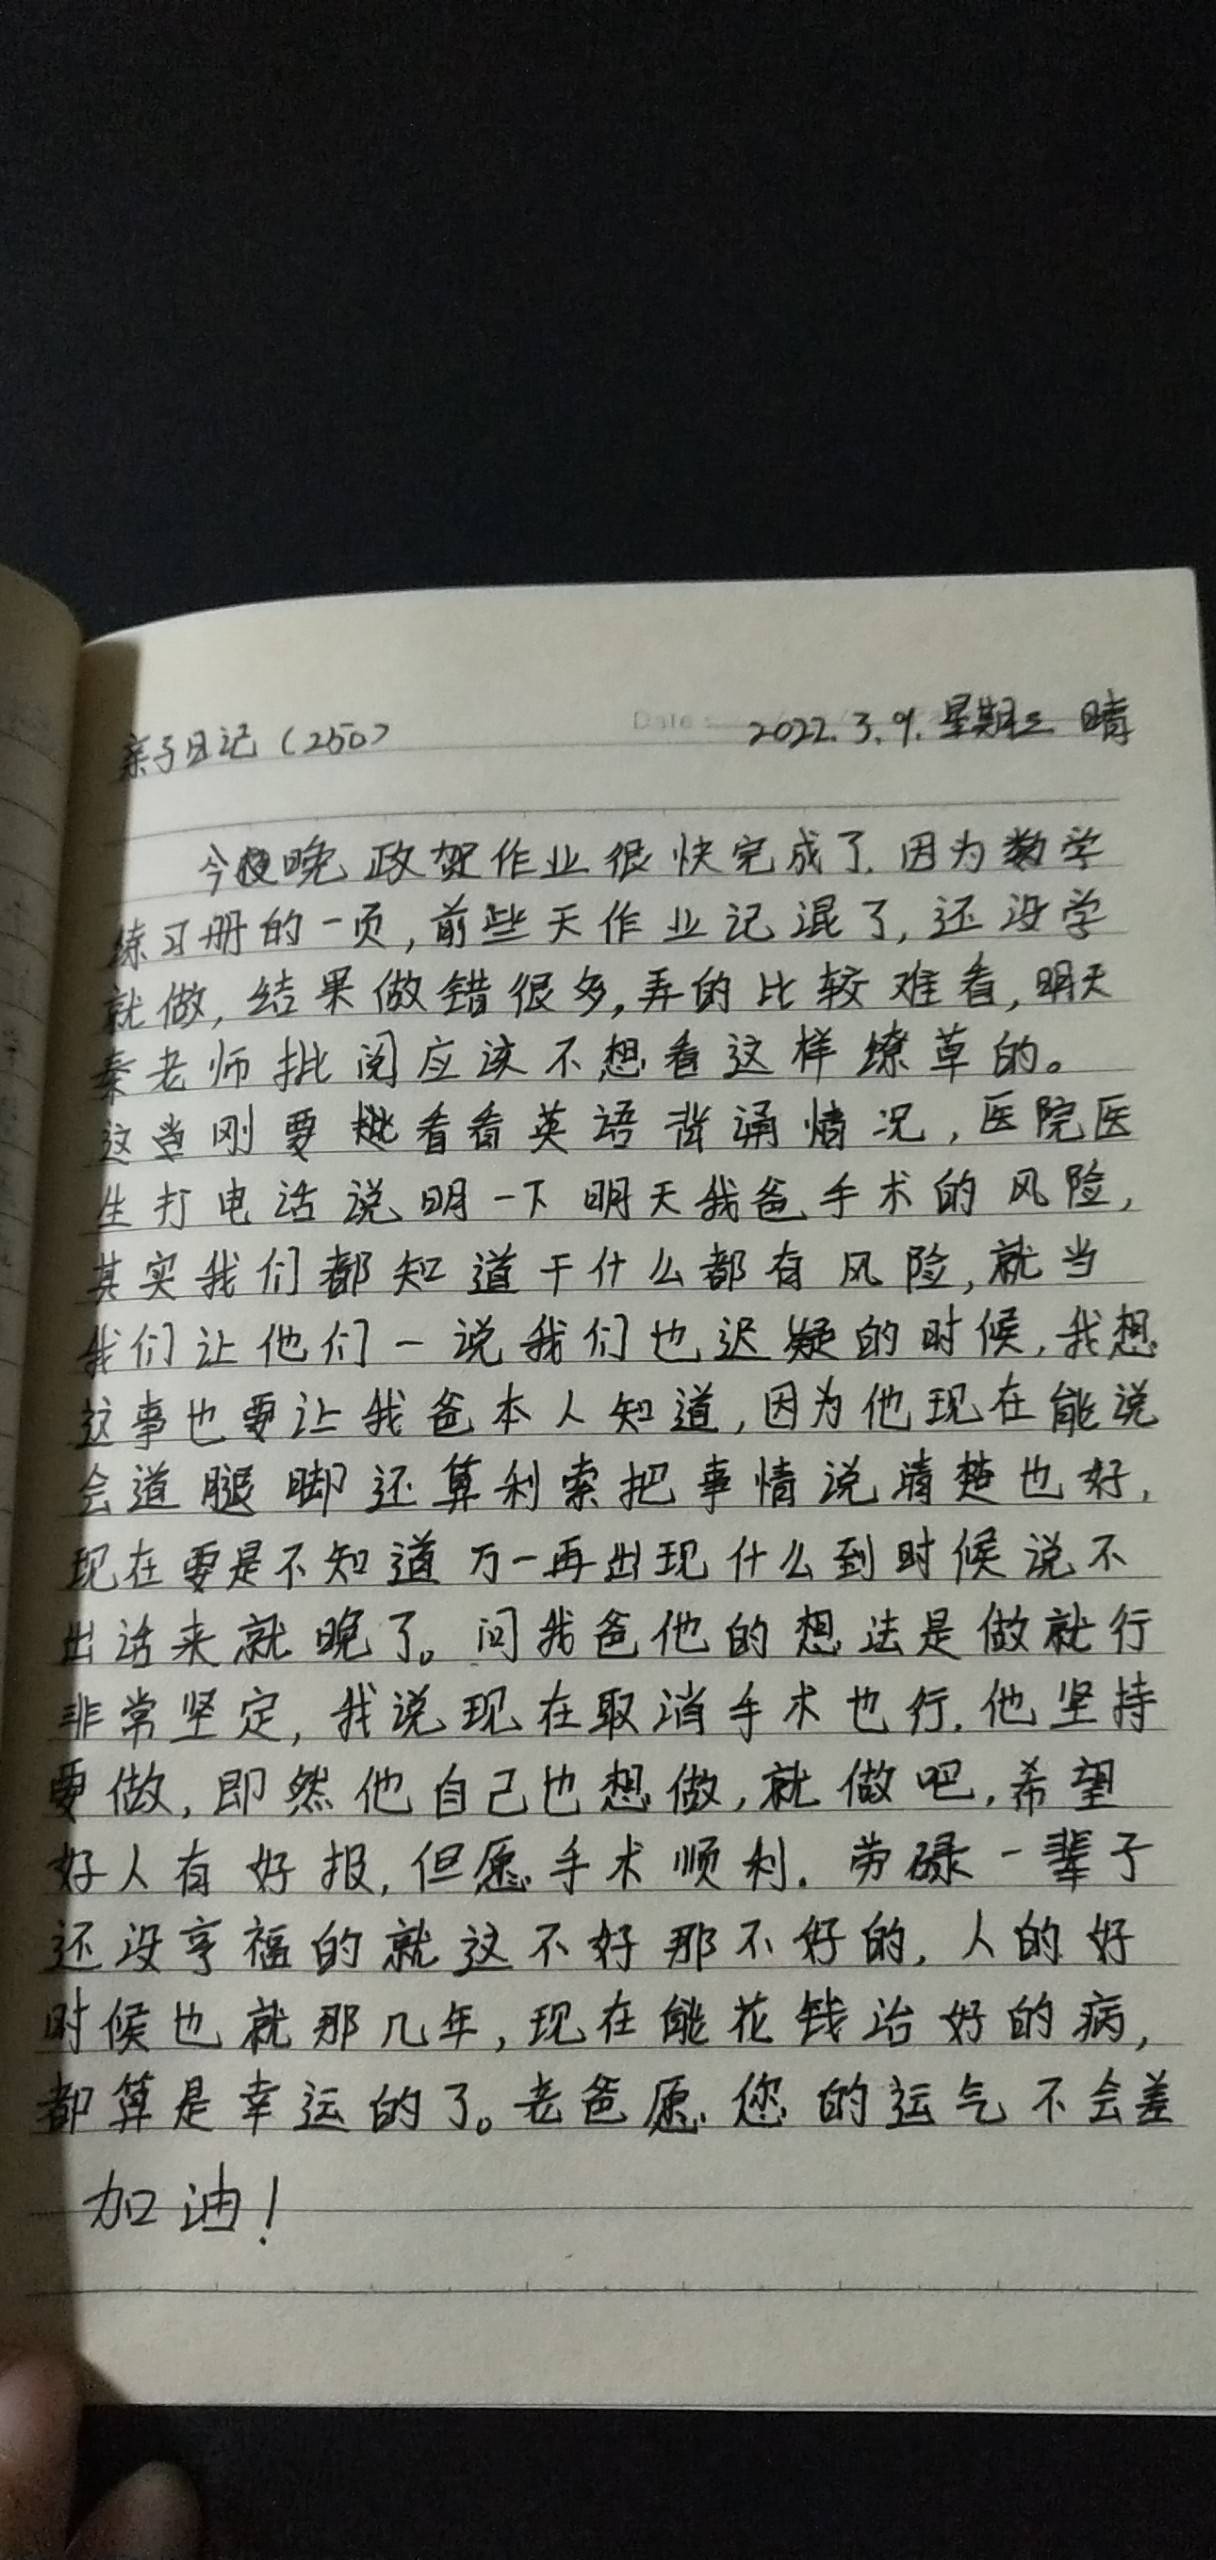 亲子日记（250） Date: 2022.3.9.星期三 晴
今晚政贺作业很快完成了.因为数学
练习册的一页,前些天作业记混了,还没学
就做,结果做错很多,弄的比较难看,明天
秦老师批阅应该不想看这样燎草的。
这当刚要挑看看英语背诵情况,医院医
生打电话说明一下明天我爸手术的风险,
其实我们都知道干什么都有风险,就当
我们让他们一说我们也迟疑的时候,我想
这事也要让我爸本人知道,因为他现在能说
会道腿脚还算利索把事情说清楚也好,
现在要是不知道万一再出现什么到时候说不
出话来就晚了。问我爸他的想法是做就行
非常坚定,我说现在取消手术也行.他坚持
要做,即然他自己也想做,就做吧,希望
好人有好报,但愿手术顺利.劳碌一辈子
还没享福的就这不好那不好的,人的好
时候也就那几年,现在能花钱治好的病,
都算是幸运的了。老爸愿您的运气不会差
加油!